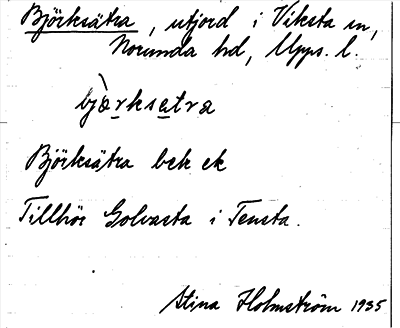 Björksätra, utjord i Viksta sn,
Norunda hd, Upps. l.
bjærksætra
Björksätra bek ek
Tillhör Golvasta i Tensta.
Stina Holmström 1935